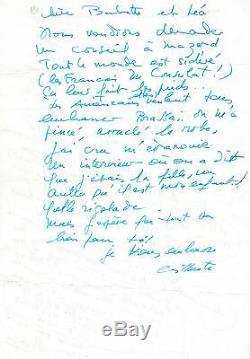 chère Barbette et Léo
Nous voudrions demander
un conseil à
Tout le monde est sidéré
(les Français du Consulat!)
Ça leur fait les pieds...
des Américains veulent tous
embrasser on m'a
pincé arraché la robe,
j'ai cru m'évanouir
Un interview où on a dit
que j'étais la fille, un
autre qu'il est mon enfant!
quelle rigolade
Mais j'espère que tout ira
bien pour
je vous embrasse
ebay